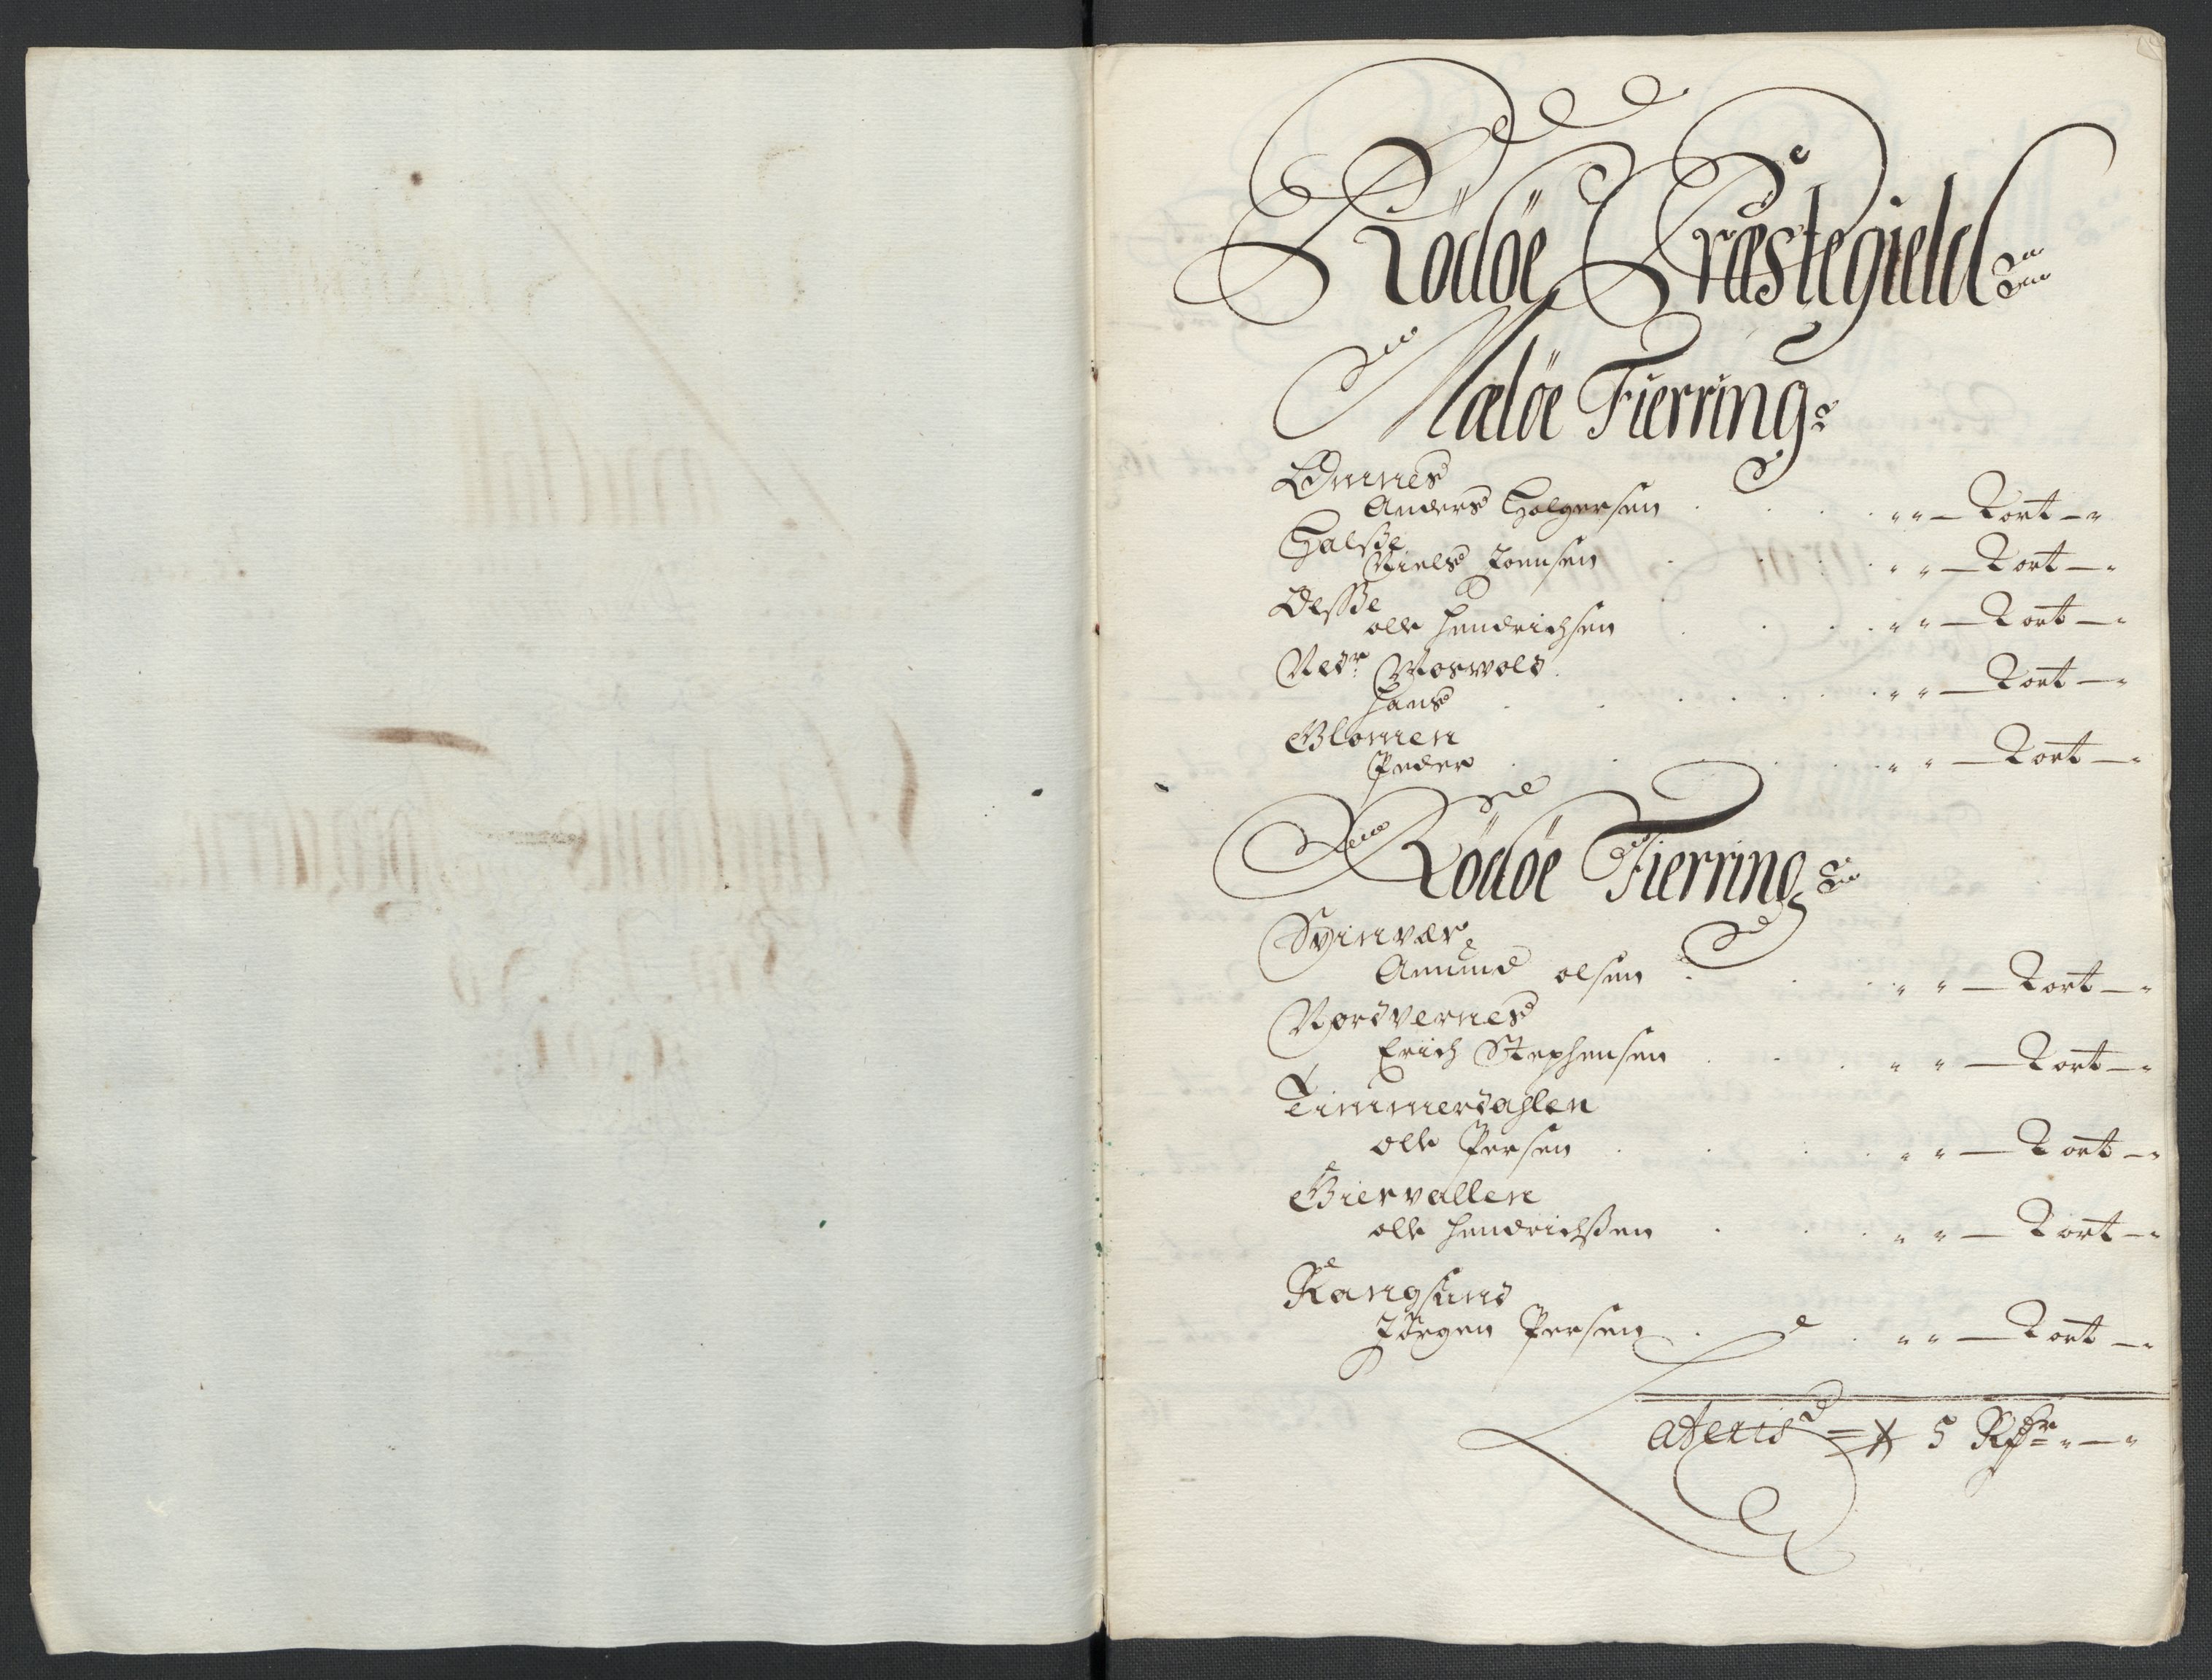 Rödöe Præstegield
Meløe Fierring
Ømnes
Anders Holgersen . . . . " " — 2 ort — "
Halsße
Niels Joensen . . . . " " — 2 ort — "
Ølsße
olle Hendrichsen . . . " " — 2 ort — "
Nedr Moswold
Hans . . . . . . " " — 2 ort — "
Blomen
Peder . . . . . " " — 2 ort — "
Rödöe Fierring
Svinvær
Amund olsen . . . " " — 2 ort — "
Nordvernes
Erich Stephensen . . . " " — 2 ort — "
Timmerdahlen
olle Persen . . . . " " — 2 ort — "
Biervallen
olle Hendrichßen . . . " " — 2 ort — "
Rangsund
Jørgen Persen . . . " " — 2 ort — "
Lateris = 5 Rdr " — "